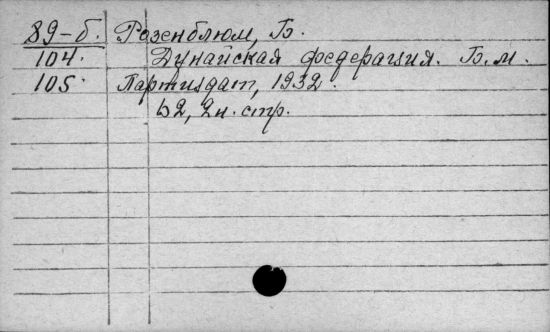 89-б. Розенблюм, Б.
104. Дунайская федерация. Б.м.
105. Партиздат, 1932.
52, 2н. стр.